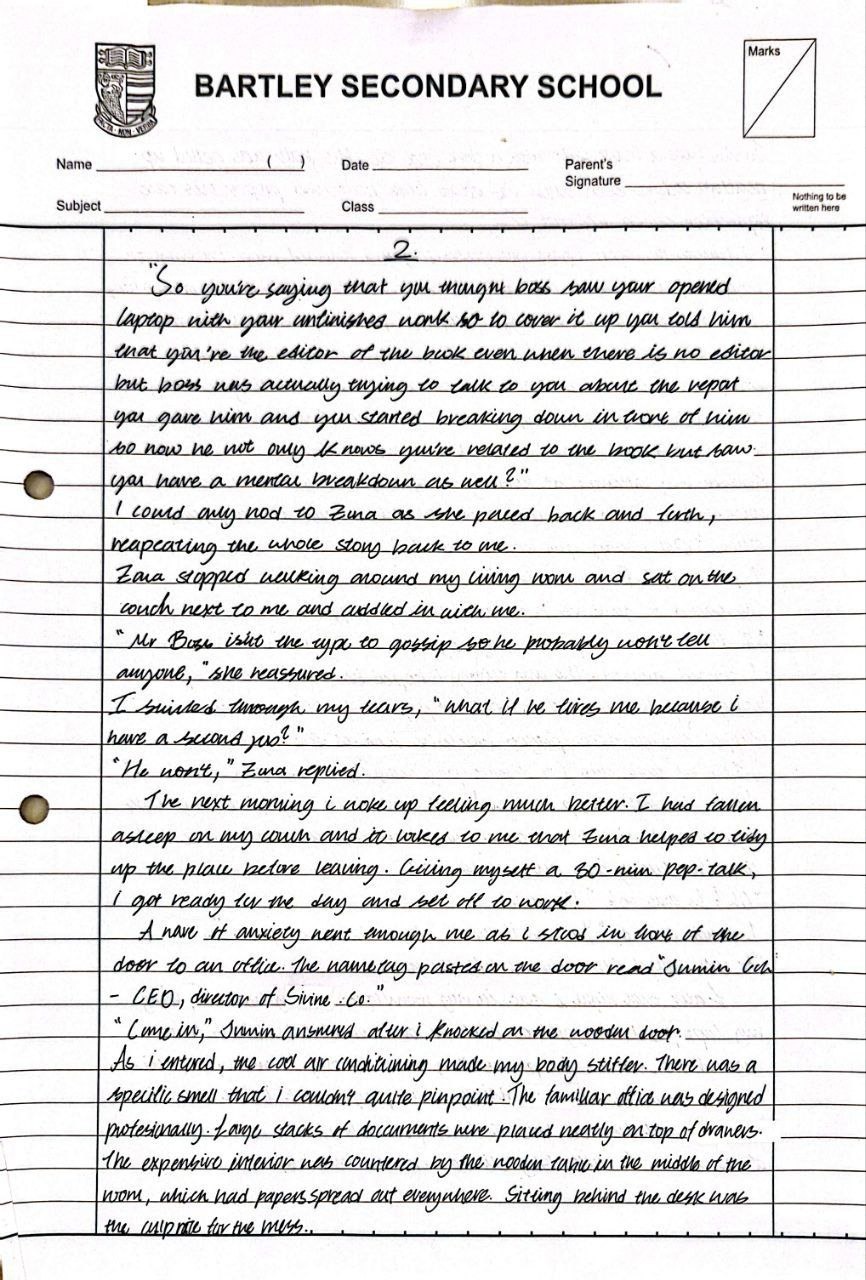 BARTLEY SECONDARY SCHOOL
Marks
Name ( ) Date Parent's Signature
Subject Class Nothing to be written here
2.
"So you're saying that you thought boss saw your opened
laptop with your unfinished work so to cover it up you told him
that you're the editor of the book even when there is no editor
but boss was actually trying to talk to you about the repot
you gave him and you started breaking down in front of him
so now he not only knows you're related to the book but saw
you have a mental breakdown as well?"
I could only nod to Zara as she paced back and forth,
reapeating the whole story back to me.
Zara stopped walking around my living room and sat on the
couch next to me and cuddled in with me.
"Mr Boss isn't the type to gossip so he probably won't tell
anyone," she reassured.
I through my tears, "what if he fires me because i
have a second job?"
"He won't," Zara replied.
The next morning i woke up feeling much better. I had fallen
asleep on my couch and it to me that Zara helped to tidy
up the place before leaving. Giving myself a 30-min pep-talk,
i got ready for the day and set off to work.
A wave of anxiety went through me as i stood in front of the
door to an office. The nametag pasted on the door read "Jumin Goh
- CEO, director of Sivine .Co."
"Come in," Jumin answered after i knocked on the wooden door.
As i entered, the cool air conditining made my body stiffer. There was a
specific smell that i couldn't quite pinpoint. The familiar office was designed
profesionally. Large stacks of doccuments were placed neatly on top of drawers.
The expensive interior was countered by the wooden table in the middle of the
room, which had papers spread out everywhere. Sitting behind the desk was
the for the mess..